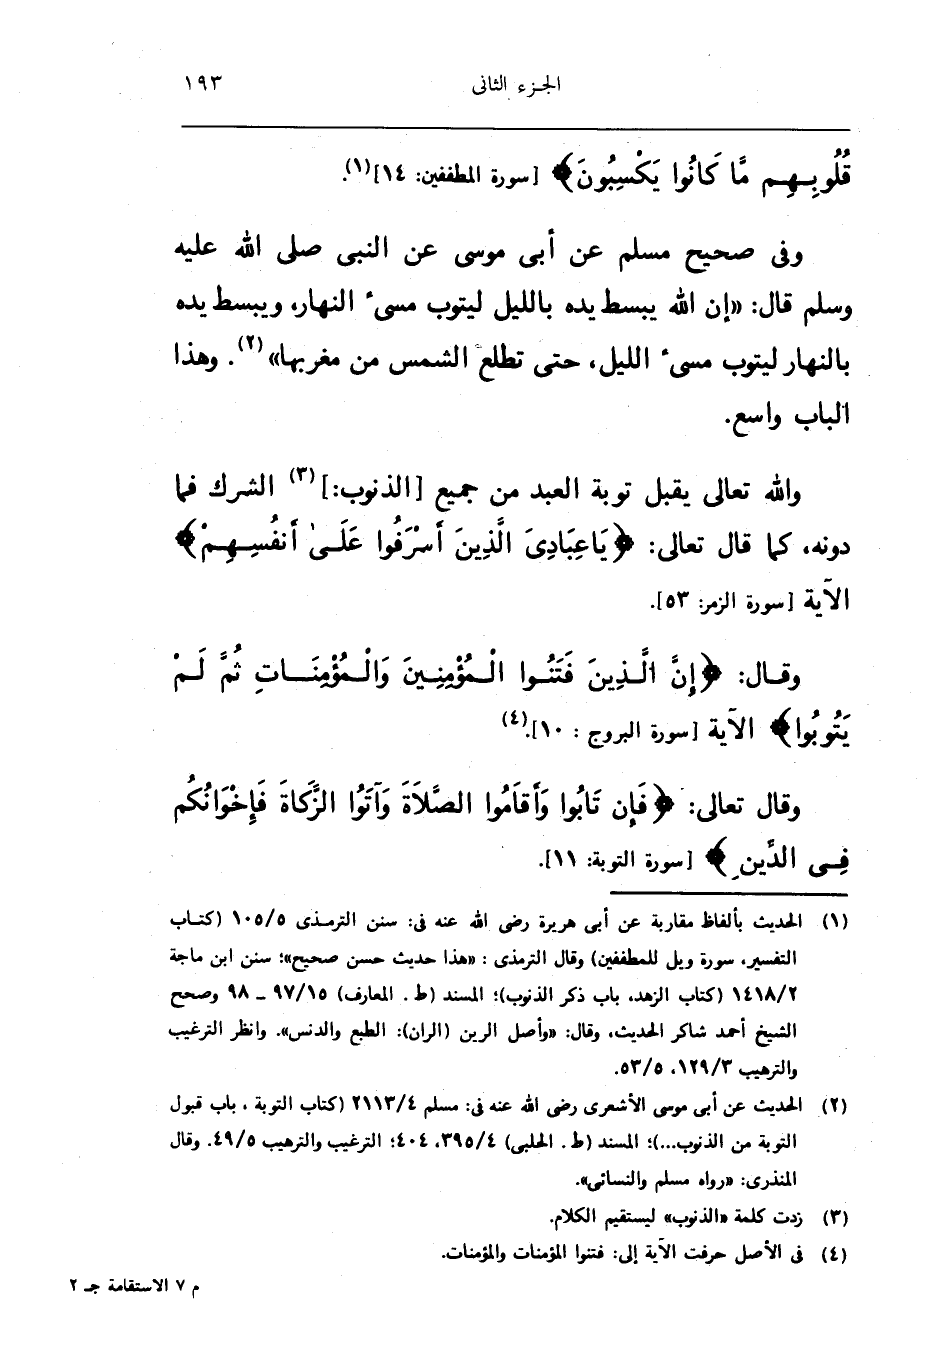 الجزء الثانى ١٩٣
قُلُوبِهِم مَّا كَانُوا يَكْسِبُونَ﴾ [سورة المطففين: ١٤]⁽¹⁾.
وفى صحيح مسلم عن أبى موسى عن النبى صلى الله عليه
وسلم قال: «إن الله يبسط يده بالليل ليتوب مسىء النهار، ويبسط يده
بالنهار ليتوب مسىء الليل، حتى تطلع الشمس من مغربها»(٢). وهذا
الباب واسع.
والله تعالى يقبل توبة العبد من جميع [الذنوب:](٣) الشرك فما
دونه، كما قال تعالى: ﴿يَاعِبَادِىَ الَّذِينَ أَسْرَفُوا عَلَىٰ أَنفُسِهِمْ﴾
الآية [سورة الزمر: ٥٣].
وقال: ﴿إِنَّ الَّذِينَ فَتَنُوا الْمُؤْمِنِينَ وَالْمُؤْمِنَاتِ ثُمَّ لَمْ
يَتُوبُوا﴾ الآية [سورة البروج : ١٠].(٤)
وقال تعالى: ﴿فَإِن تَابُوا وَأَقَامُوا الصَّلَاةَ وَآتَوُا الزَّكَاةَ فَإِخْوَانُكُم
فِى الدِّينِ﴾ [سورة التوبة: ١١].
(١) الحديث بألفاظ مقاربة عن أبى هريرة رضى الله عنه فى: سنن الترمذى ١٠٥/٥ (كتاب
التفسير، سورة ويل للمطففين) وقال الترمذى : «هذا حديث حسن صحيح»؛ سنن ابن ماجة
١٤١٨/٢ (كتاب الزهد، باب ذكر الذنوب)؛ المسند (ط . المعارف) ٩٧/١٥ ـ ٩٨ وصحح
الشيخ أحمد شاكر الحديث، وقال: «وأصل الرين (الران): الطبع والدنس». وانظر الترغيب
والترهيب ١٢٩/٣، ٥٣/٥.
(٢) الحديث عن أبى موسى الأشعرى رضى الله عنه فى: مسلم ٢١١٣/٤ (كتاب التوبة ، باب قبول
التوبة من الذنوب...)؛ المسند (ط . الحلبى) ٣٩٥/٤، ٤٠٤؛ الترغيب والترهيب ٤٩/٥. وقال
المنذرى: «رواه مسلم والنسائى».
(٣) زدت كلمة «الذنوب» ليستقيم الكلام.
(٤) فى الأصل حرفت الآية إلى: فتنوا المؤمنات والمؤمنات.
م ٧ الاستقامة جـ ٢